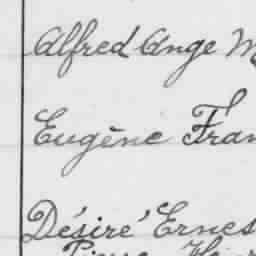 Alfred Ange M
Eugène Fran
Désiré Ernes
Pierre